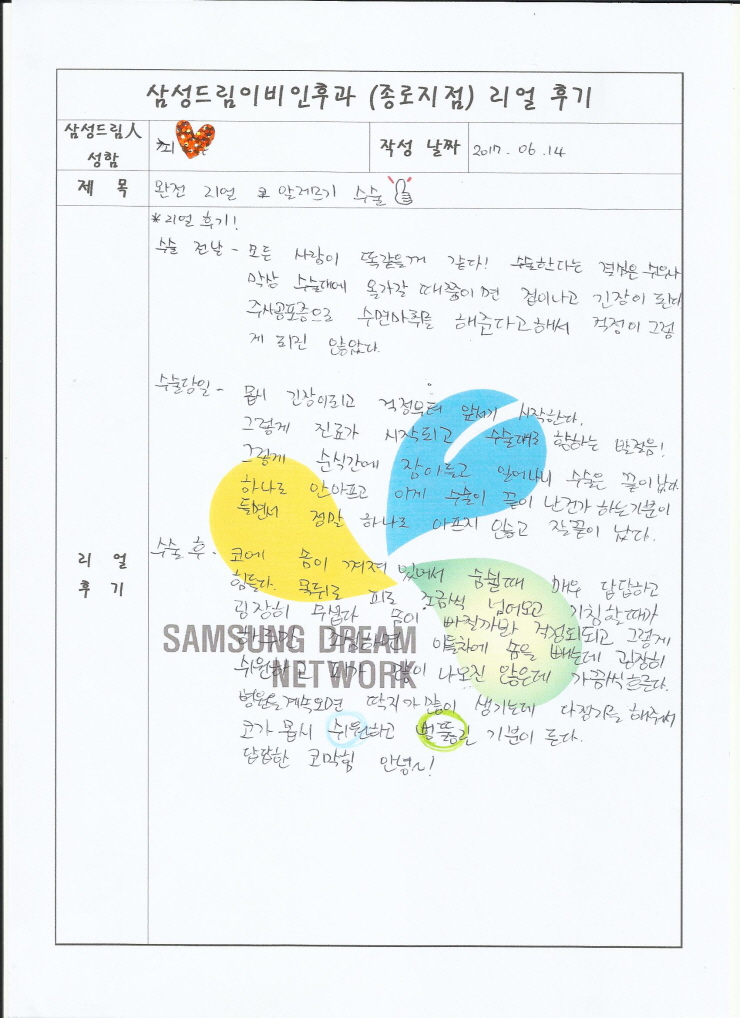 삼성드림이비인후과 (종로지점) 리얼 후기
삼성드림人 성함
최
작성 날짜
2017. 06. 14
제 목
완전 리얼 코 알레르기 수술
리 얼 후 기
*리얼 후기!
수술 전날 - 모든 사람이 똑같을께 같다! 수술한다는 결심은 쉬우나
막상 수술대에 올가갈 때쯤이면 겁이나고 긴장이 된다
주사공포증으로 수면마취를 해준다고해서 걱정이 그렇
게 되진 않았다.
수술당일 - 몹시 긴장이되고 걱정부터 앞서기 시작한다.
그렇게 진료가 시작되고 수술대로 향하는 발걸음!
그렇게 순식간에 잠이들고 일어나니 수술은 끝이났다.
하나로 안아프고 이게 수술이 끝이 난건가 하는기분이
들면서 정말 하나로 아프지 않고 잘끝이 났다.
수술 후 - 코에 솜이 껴져 있어서 숨쉴때 매우 답답하고
힘들다. 목뒤로 피로 조금씩 넘어오고 기침할때마
굉장히 무섭다 솜이 빠질까봐 걱정되되고 그렇게
하루가 조심하면 이틀차에 솜을 빼는데 굉장히
쉬원하고 피가 많이 나오진 않은데 가끔씩흐른다.
병원을계속오면 딱지가많이 생기는데 다정기을 해주셔
코가 몹시 쉬원하고 뻘뚫린 기분이 든다.
답답한 코막힘 안녕~!
SAMSUNG DREAM
NETWORK